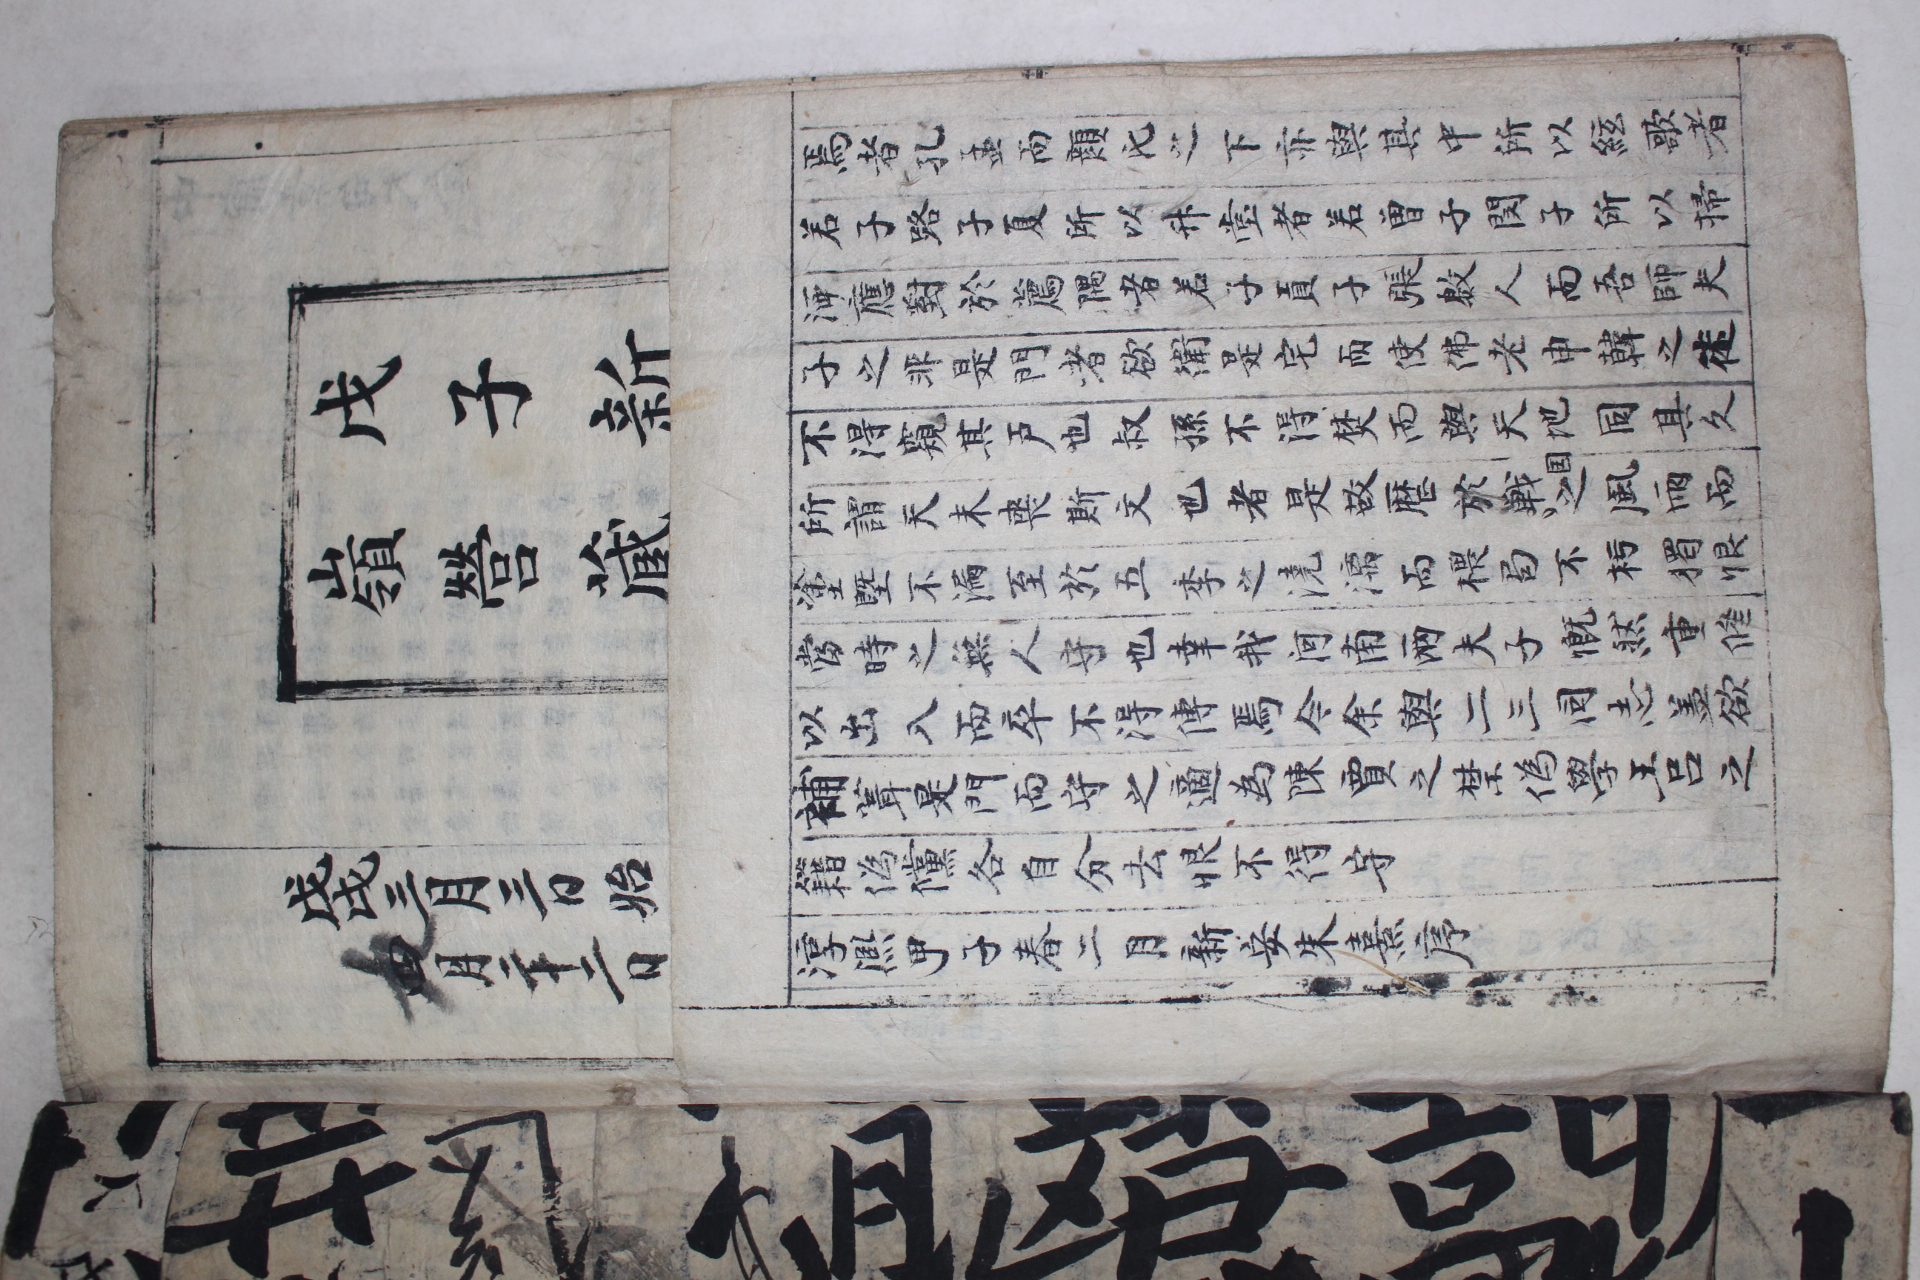 戊子新
嶺營藏
戊戌三月三日始
四月二十二日
焉者孔孟而顔氏之下亦與其中所以絃歌者
若子路子夏所以升堂者若曾子閔子所以掃
洒應對於薦隅者若子貢子張數人而吾師夫
子之非是門者欲衛是宅而使佛老申韓之徒
不得窺其戶也叔孫不得焚而與天地同其久
所謂天未喪斯文也者是故歷於戰国之風雨而
塗墍不漏至於五季之澆漓而楗局不朽獨恨
當時之無人守也幸我河南兩夫子慨然重修
以出入而卒不得傳焉今余與二三同志盖欲
補葺是門而守之適為陳賈之禁偽學王呂之
籍偽儻各自分去恨不得守
淳熙甲子春二月新安朱熹序